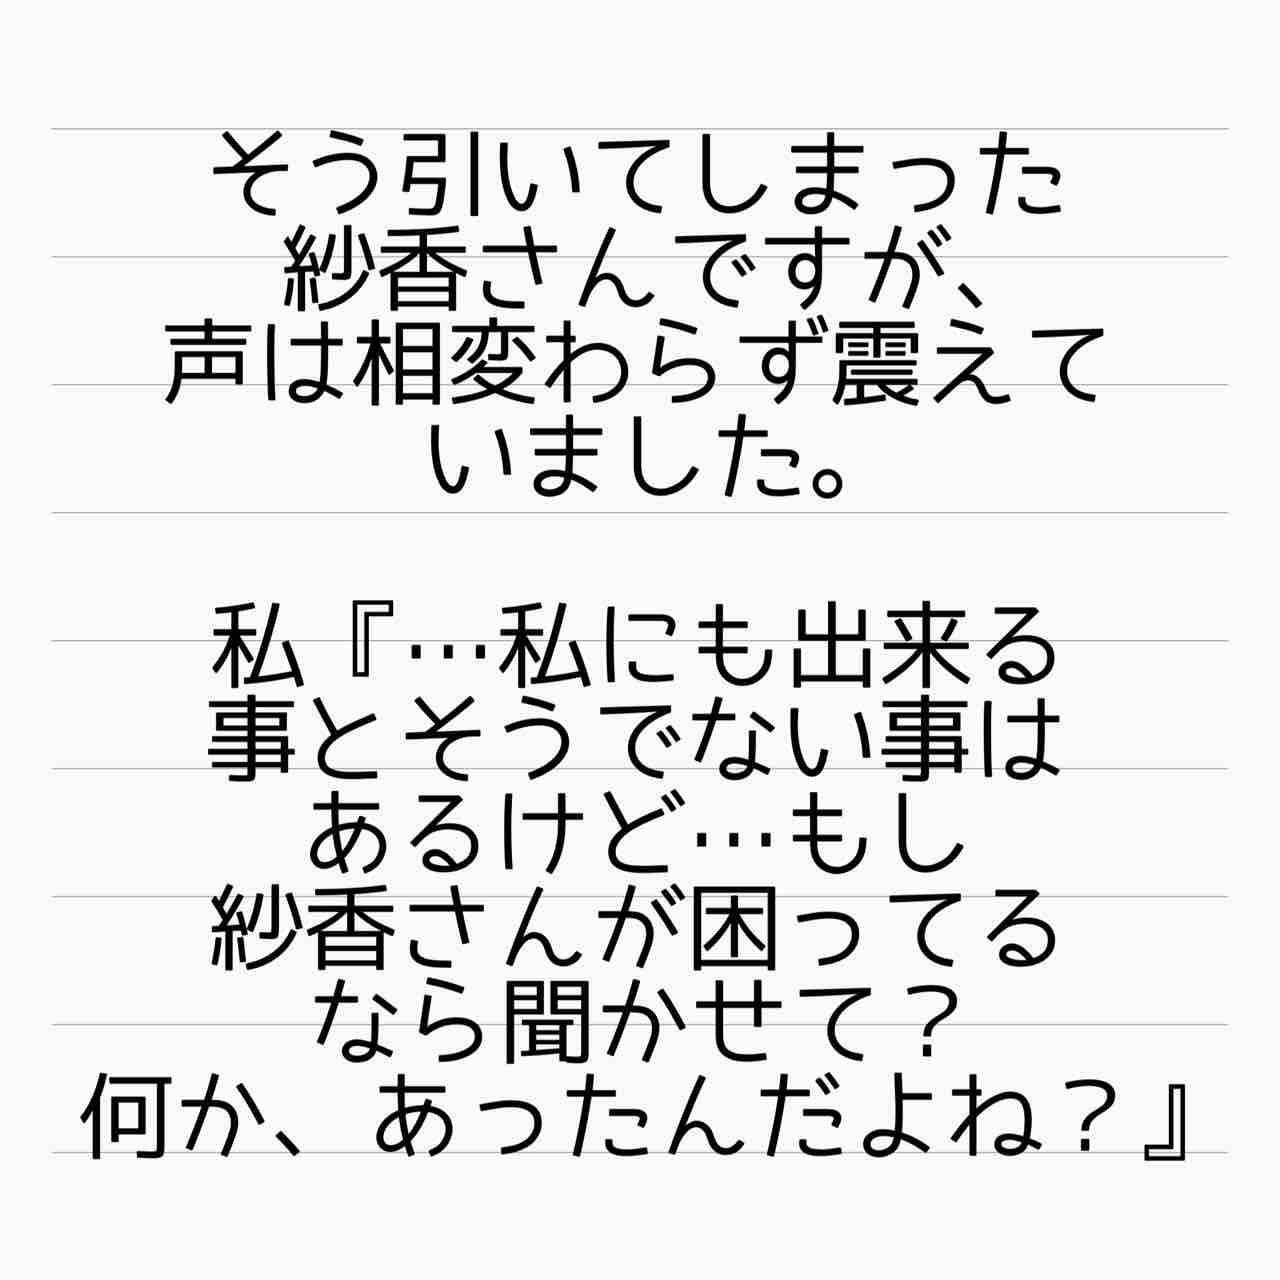 そう引いてしまった
紗香さんですが、
声は相変わらず震えて
いました。
私『…私にも出来る
事とそうでない事は
あるけど…もし
紗香さんが困ってる
なら聞かせて？
何か、あったんだよね？』